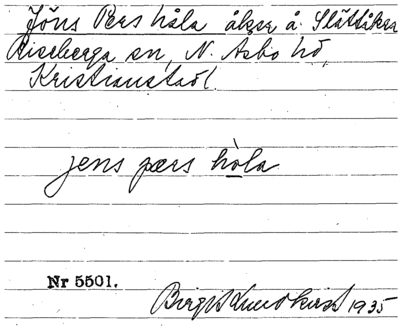 Jöns Pers håla åker å. Slättåkra
Riseberga sn, N. Åsbo hd,
Kristianstad l.
jens pærs hòla
Nr 5501.
Birgit Lundkvist 1935